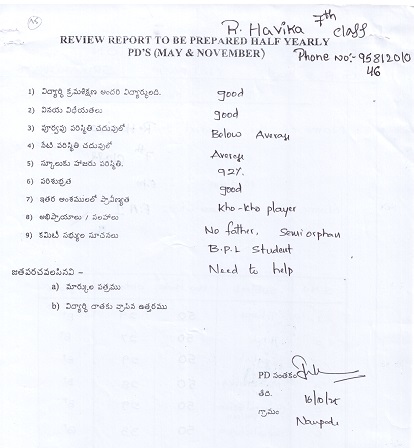 R. Havika 7th class
REVIEW REPORT TO BE PREPARED HALF YEARLY
PD'S (MAY & NOVEMBER)
Phone No:- 95812010
46
1) విద్యార్థి క్రమశిక్షణ అందరి విద్యార్థులది. good
2) వినయ విధేయతలు good
3) పూర్వపు పరిస్థితి చదువులో Below Average
4) నేటి పరిస్థితి చదువులో Average
5) స్కూలుకు హాజరు పరిస్థితి. 92%
6) పరిశుభ్రత good
7) ఇతర అంశములలో ప్రావీణ్యత kho-kho player
8) అభిప్రాయాలు / సలహాలు No father, Semi orphan
9) కమిటీ సభ్యుల సూచనలు B.P.L Student
Need to help
జతపరచవలసినవి -
a) మార్కుల పత్రము
b) విద్యార్థి దాతకు వ్రాసిన ఉత్తరము
PD సంతకం
తేది. 16/10/25
గ్రామం Naupada